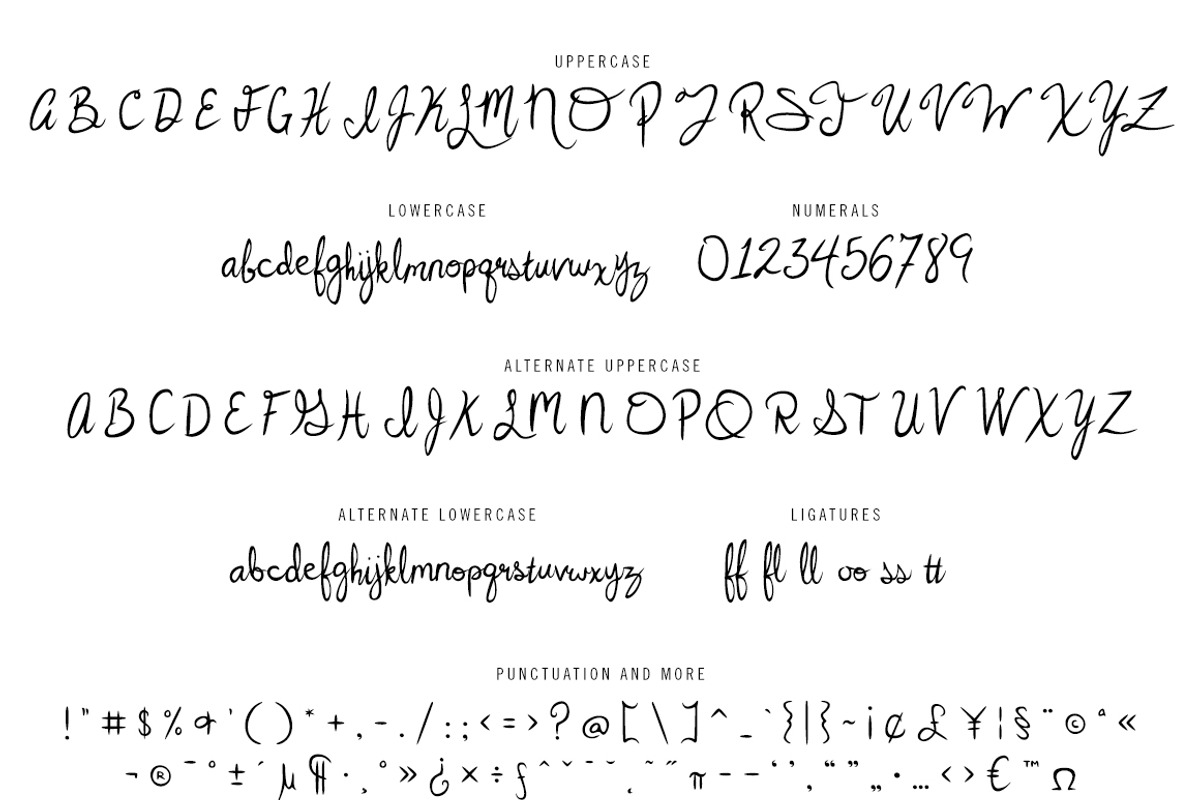 UPPERCASE
A B C D E F G H I J K L M N O P Q R S T U V W X Y Z
LOWERCASE
abcdefghijklmnopqrstuvwxyz
NUMERALS
0123456789
ALTERNATE UPPERCASE
A B C D E F G H I J K L M N O P Q R S T U V W X Y Z
ALTERNATE LOWERCASE
abcdefghijklmnopqrstuvwxyz
LIGATURES
ff fl ll oo ss tt
PUNCTUATION AND MORE
! " # $ % & ' ( ) * + , - . / : ; < = > ? @ [ \ ] ^ _ ` { | } ~ ¡ ¢ £ ¥ ¦ § ¨ © ª «
¬ ® ¯ ° ± ´ µ ¶ · ¸ º » ¿ × ÷ ƒ ˆ ˇ ˉ ˘ ˛ ˜ ˝ π – — ‘ ’ ‚ “ ” „ • … ‹ › € ™ Ω